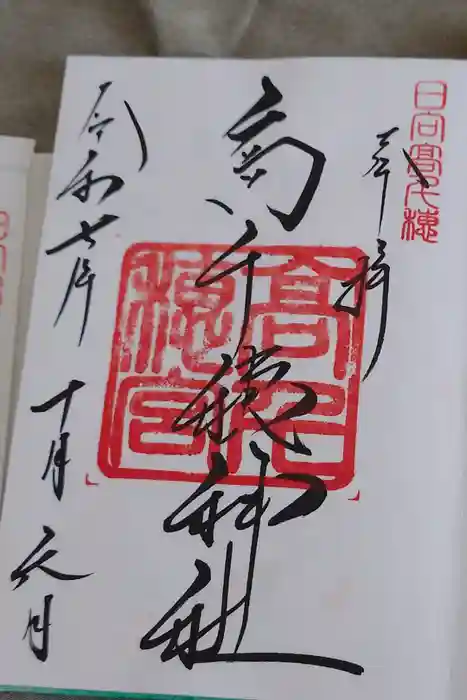 日向高千穂
奉拝
高千穂神社
高千穂宮
令和七年十月六日